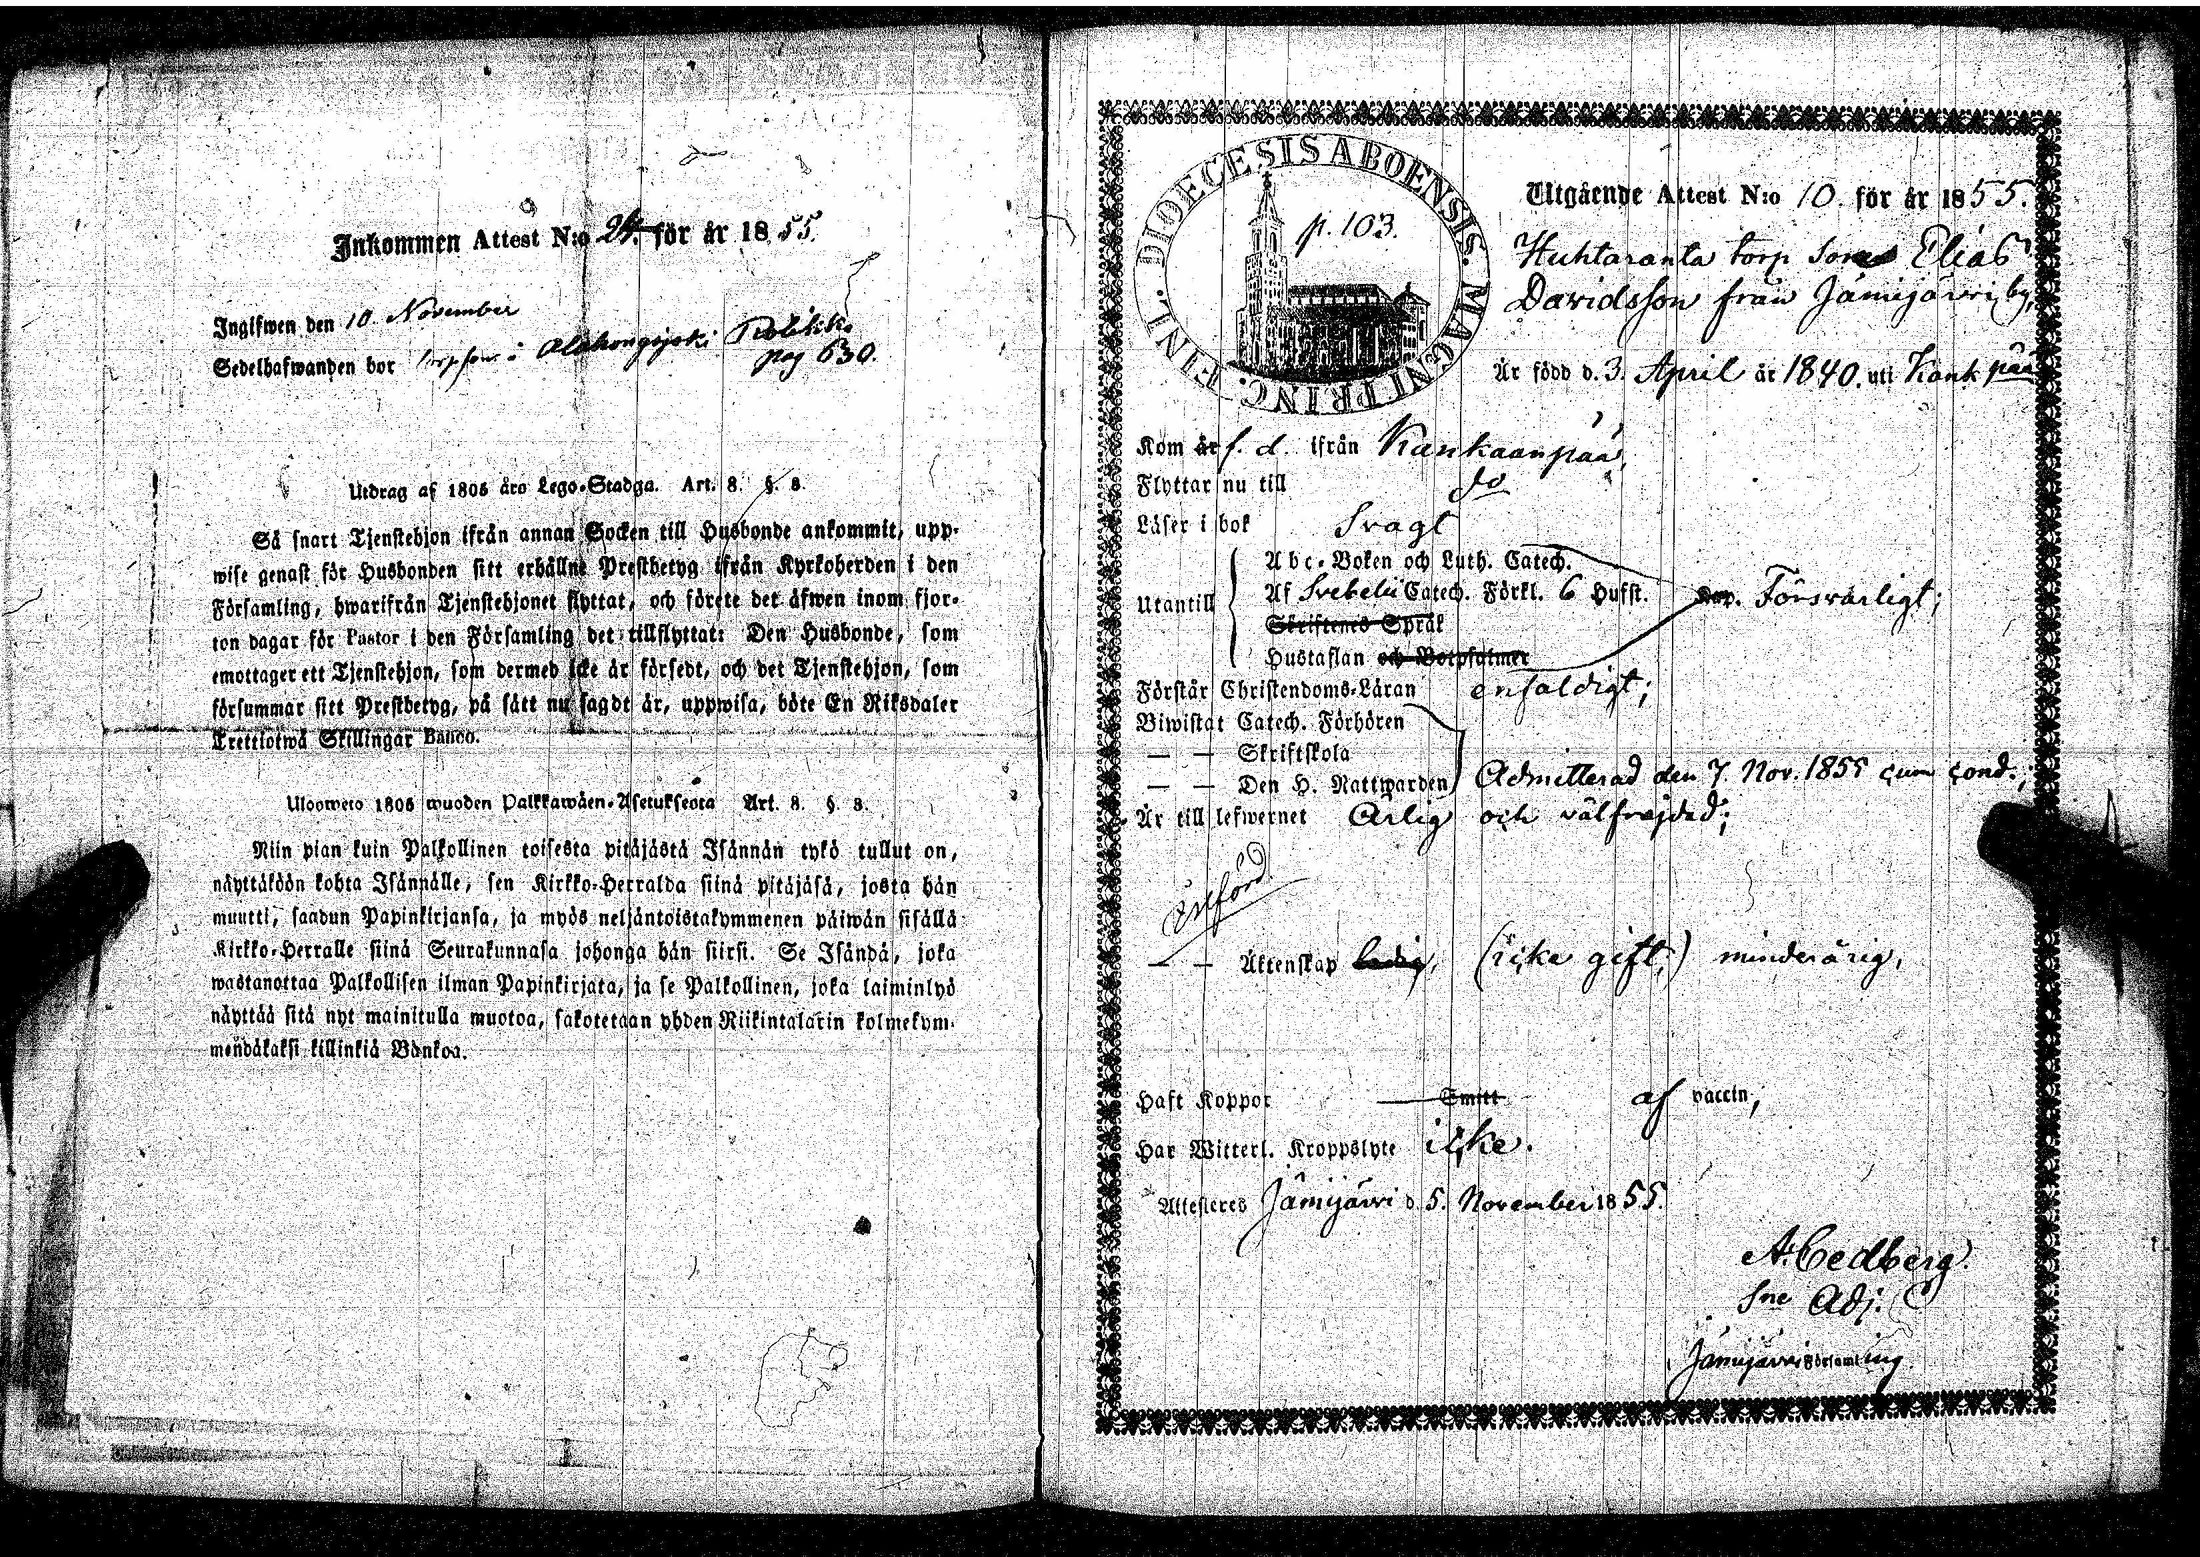 Inkommen Attest N:o 24. för år 1855.
Ingifwen den 10. November
Sedelhafwanden bor torpson i Alahongojoki
pag 630.
Utdrag af 1805 åro Lego-Stadga. Art. 8. §. 8.
Så snart Tjenstehjon ifrån annan Socken till Husbonde ankommit, upp-
wise genast för Husbonden sitt erhållne Prestbetyg ifrån Kyrkoherden i den
Församling, hwarifrån Tjenstehjonet flyttat, och förete det äfwen inom fjor-
ton dagar för Pastor i den Församling det tillflyttat: Den Husbonde, som
emottager ett Tjenstehjon, som dermed icke är försedt, och det Tjenstehjon, som
försummar sitt Prestbetyg, på sätt nu sagdt är, uppwisa, böte En Riksdaler
Trettiotwå Skillingar Banco.
Ulooweto 1805 wuoden Palkkawäen-Asetuksesta Art. 8. §. 8.
Niin pian kuin Palkollinen toisesta pitäjästä Isännän tykö tullut on,
näyttäköön kohta Isännälle, sen Kirkko-Herralda siinä pitäjäsä, josta hän
muutti, saadun Papinkirjansa, ja myös neljäntoistakymmenen päiwän sisällä
Kirkko-Herralle siinä Seurakunnasa johonga hän siirsi. Se Isändä, joka
wastanottaa Palkollisen ilman Papinkirjata, ja se Palkollinen, joka laiminlyö
näyttää sitä nyt mainitulla muotoa, sakotetaan yhden Riikintalarin kolmekym-
mendäkaksi killinkiä Bankoa.
DIOECESIS ABOENSIS. MAGNI PRINC. FINL.
p. 103.
Utgående Attest N:o 10. för år 1855.
Huhtaranta torp sones Elias
Davidsson från Jämijärvi by,
Är född d. 3. April år 1840. uti Kankpää
Kom år f. d. ifrån Kankaanpää,
Flyttar nu till do
Läser i bok Svagt
Utantill
Abc-Boken och Luth. Catech.
Af Svebelii Catech. Förkl. 6 Hufst. Försvarligt;
Skriftenes Språk
Hustaflan och Botpsalmer
Förstår Christendoms-Läran enfaldigt;
Biwistat Catech. Förhören
— — Skriftskola
— — Den H. Nattwarden Admitterad den 7. Nov. 1855 cum cond.;
Är till lefwernet Ärlig och välfrejdad;
— — Äktenskap ledig, (icke gift,) minderårig,
Haft Koppor Smitt af vaccin,
Har Witterl. Kroppslyte icke.
Attesteres Jämijärvi d. 5. November 1855.
A. Cedberg.
Sne Adj.
Jämijärvi Församling.